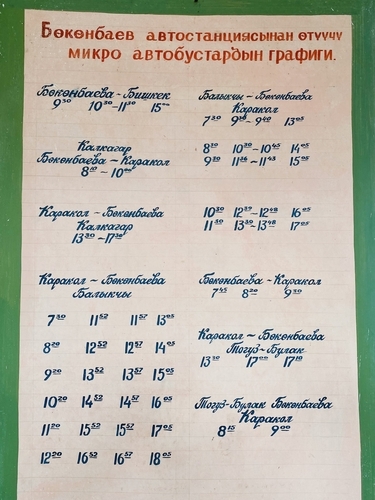 Бөкөнбаев автостанциясынан өтүүчү
микро автобустардын графиги.
Бөкөнбаева - Бишкек
9³⁰ 10³⁰-11³⁰ 15⁰⁰
Калкагар
Бөкөнбаева - Каракол
8¹⁰ - 10⁰⁰
Каракол - Бөкөнбаева
Калкагар
13³⁰ - 17³⁰
Каракол - Бөкөнбаева
Балыкчы
7³⁰ 11⁵² 11⁵⁷ 13⁰⁵
8²⁰ 12⁵² 12⁵⁷ 14⁰⁵
9²⁰ 13⁵² 13⁵⁷ 15⁰⁵
10²⁰ 14⁵² 14⁵⁷ 16⁰⁵
11²⁰ 15⁵² 15⁵⁷ 17⁰⁵
12²⁰ 16⁵² 16⁵⁷ 18⁰⁵
Балыкчы - Бөкөнбаева
Каракол
7³⁰ 9³⁶ - 9⁴⁰ 13⁰⁵
8³⁰ 10³⁰ - 10⁴⁵ 14⁰⁵
9³⁰ 11³⁶ - 11⁴³ 15⁰⁵
10³⁰ 12³⁹ - 12⁴⁸ 16⁰⁵
11³⁰ 13³⁹ - 13⁴⁸ 17⁰⁵
Бөкөнбаева - Каракол
7⁴⁵ 8²⁰ 9³⁰
Каракол - Бөкөнбаева
Тогуз-Булак
13³⁰ 17⁰⁰ 17¹⁰
Тогуз-Булак Бөкөнбаева
Каракол
8¹⁵ 9⁰⁰